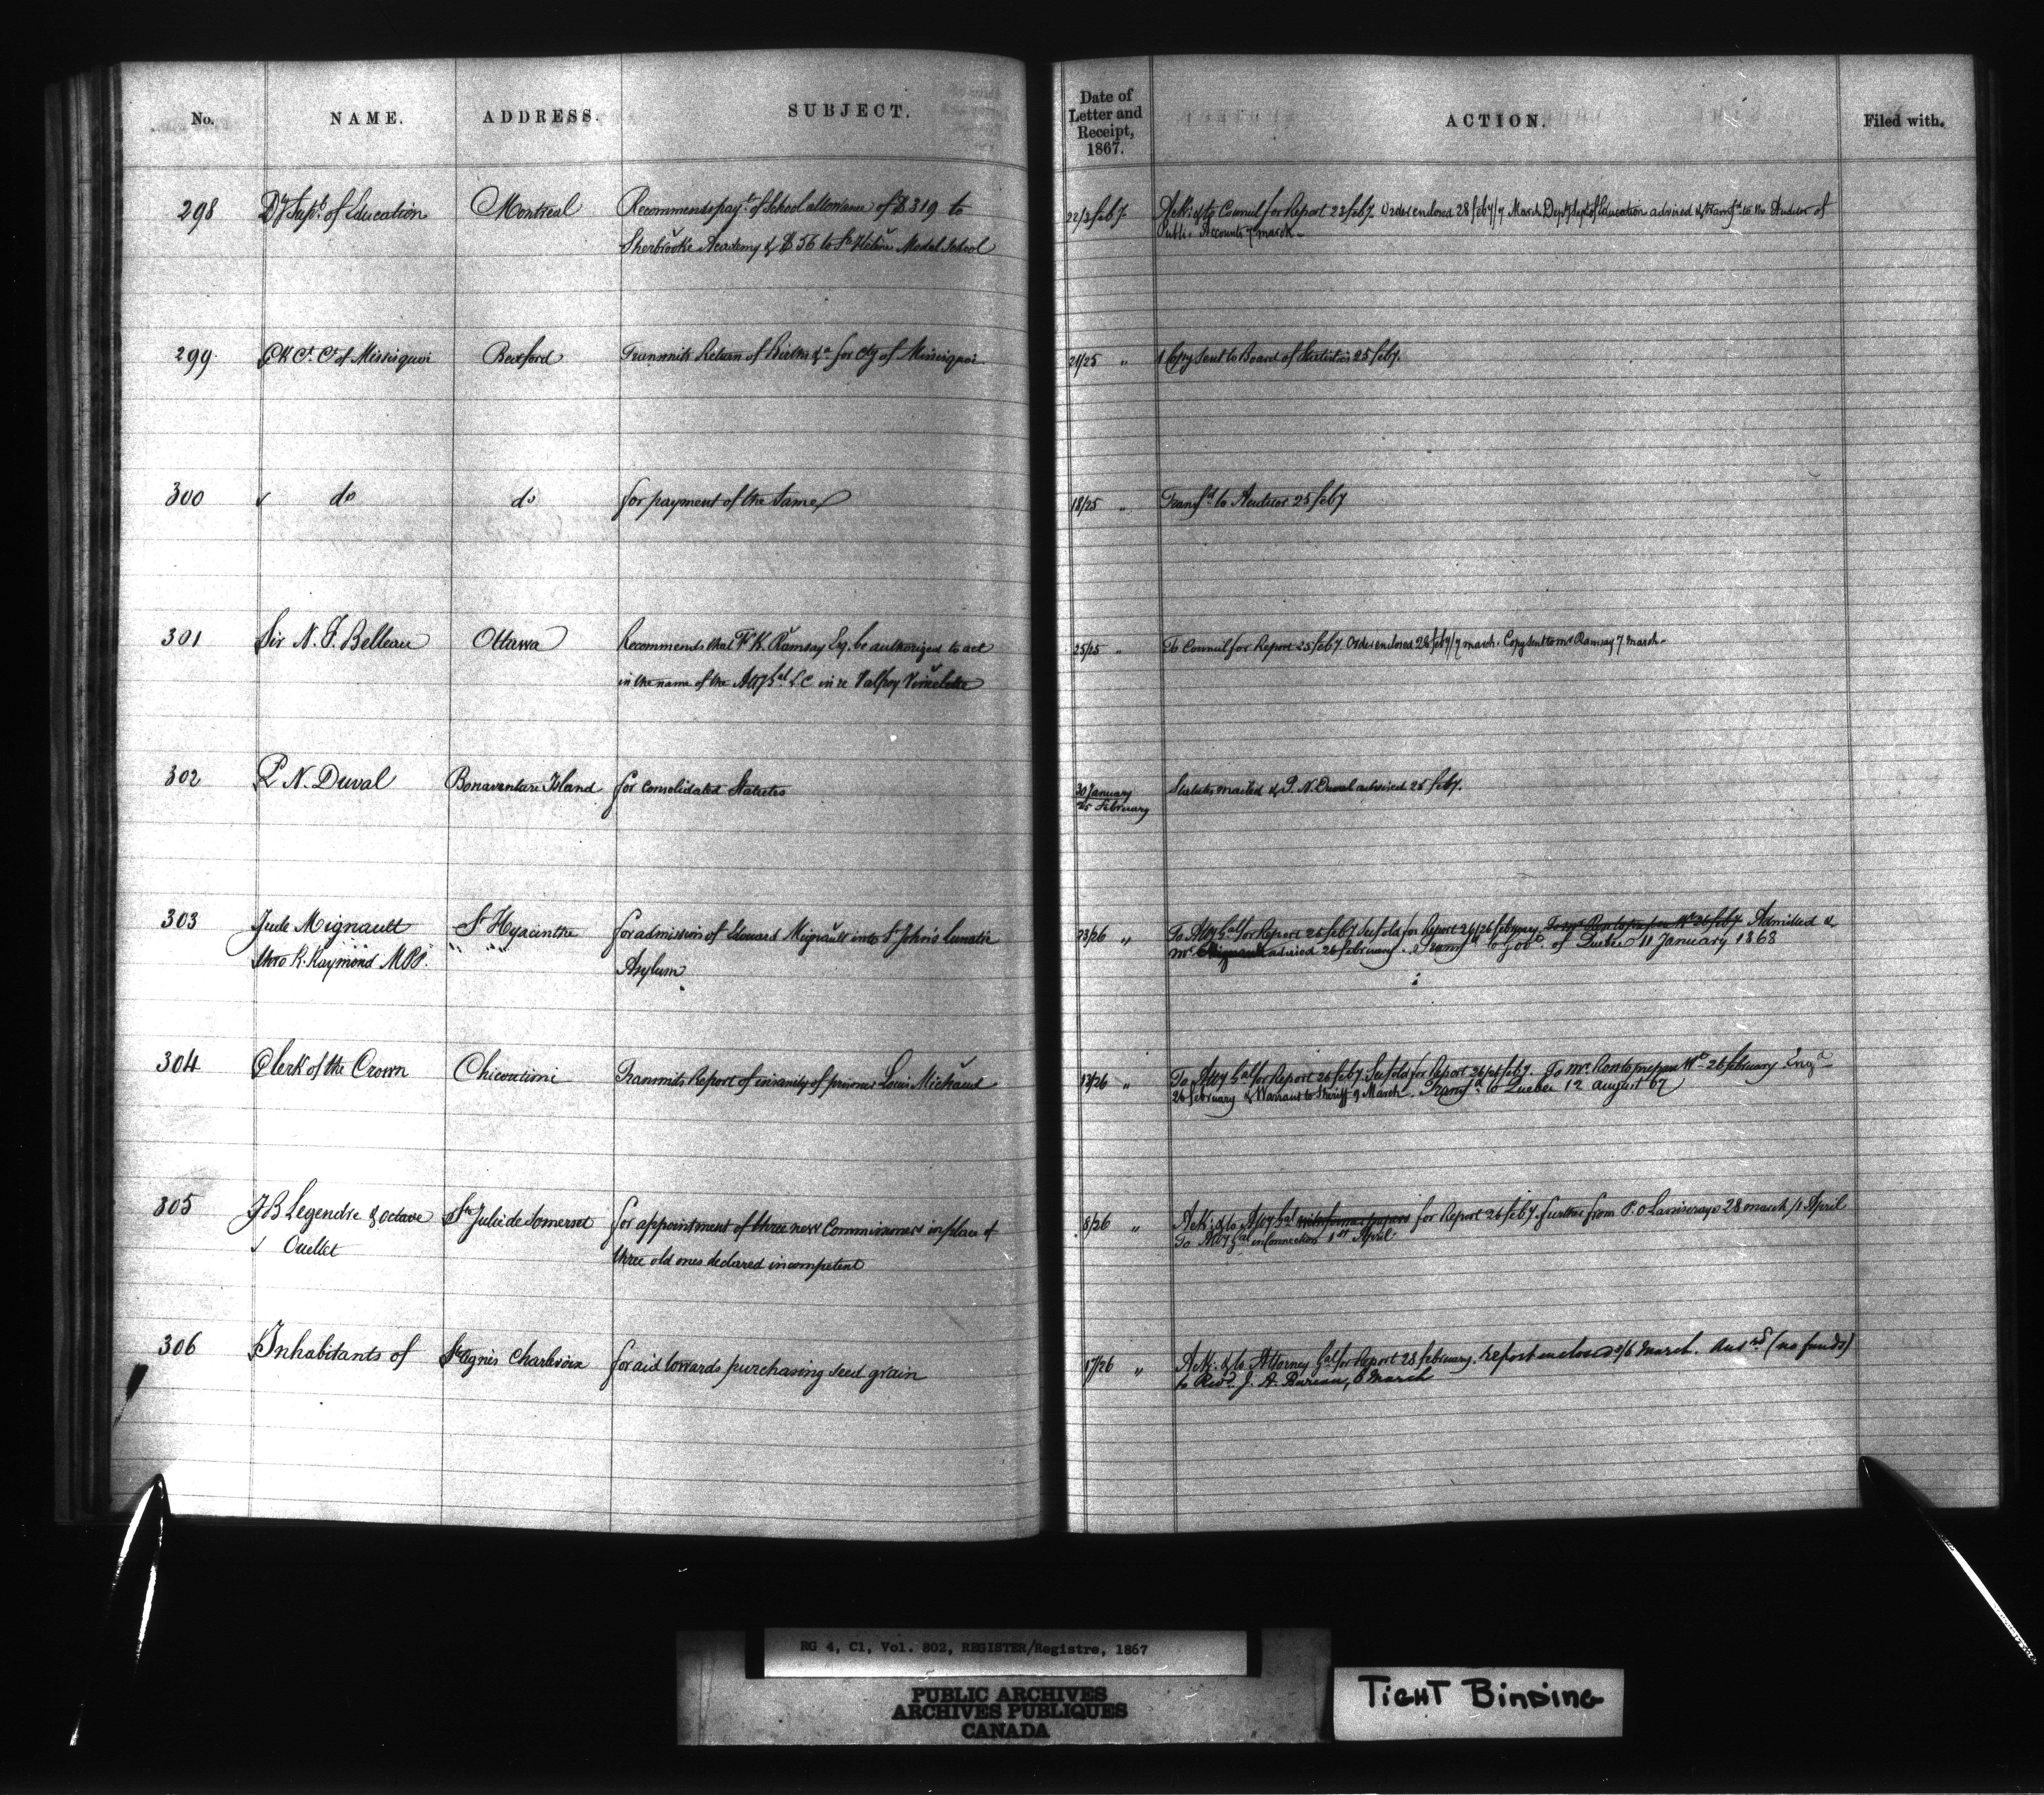 No. NAME. ADDRESS. SUBJECT. Date of Letter and Receipt, 1867. ACTION. Filed with.
298 Dy Supt. of Education Montreal Recommends payt. of School allowance of $319 to
Sherbrooke Academy & $56 to St Helène Model School
22/23 feby. Ack: & to Council for Report 23 feby. Order enclosed 28 feby/7 March Depy Supt of Education advised & transfd to the Auditor of
Public Accounts 7 march
299 Bedford Transmits Return of Births &a for Cty of Missisquoi
21/25 " 1 Copy sent to Board of Statistics 25 feby.
300 do do for payment of the same
18/25 " Transfd to Auditor 25 feby
301 Sir N. F. Belleau Ottawa Recommends that K. Ramsay Esq. be authorized to act
in the name of the Atty Gal L.C in re
25/25 " To Council for Report 25 feby. Order enclosed 28 feby/7 march. Copy sent to Mr Ramsay 7 march
302 P. N. Duval Bonaventure Island for Consolidated Statutes
30 January
25 February
Statutes mailed & P. N. Duval advised 25 feby.
303 Jude Mignault St Hyacinthe for admission of Edouard Mignault into St John's lunatic
thro R. Raymond MPP. " " Asylum
23/26 " To Atty Gal for Report 26 feby for Report 26/26 february. Admitted &
Mr advised 26 february. Transfd to Govt. of Quebec 11 January 1868
304 Clerk of the Crown Chicoutimi Transmits Report of insanity of prisoner Louis Michaud
13/26 " To Atty Gal for Report 26 feby. for Report 26/26 feby. To Mr. to prepare Wt 26 february
26 february & Warrant to Sheriff 9 March. Transfd to Quebec 12 august 67
305 J B Legendre & Octave Ste Julie de Somerset for appointment of three new Commissioners in place of
Ouellet three old ones declared incompetent
8/26 " Ack: & to Atty Gal for Report 26 feby. further from P. O 28 march/1 April
To Atty Gal in Connection 1st April
306 Inhabitants of St Agnès Charlevoix for aid towards purchasing seed grain
17/26 " Ack: & to Attorney Gal for Report 28 february. report enclosed 5/6 March. Ansd (no funds)
to Revd. J. A. Bureau, 6 March
RG 4, C1, Vol. 802, REGISTER/Registre, 1867
PUBLIC ARCHIVES
ARCHIVES PUBLIQUES
CANADA
TIGHT BINDING